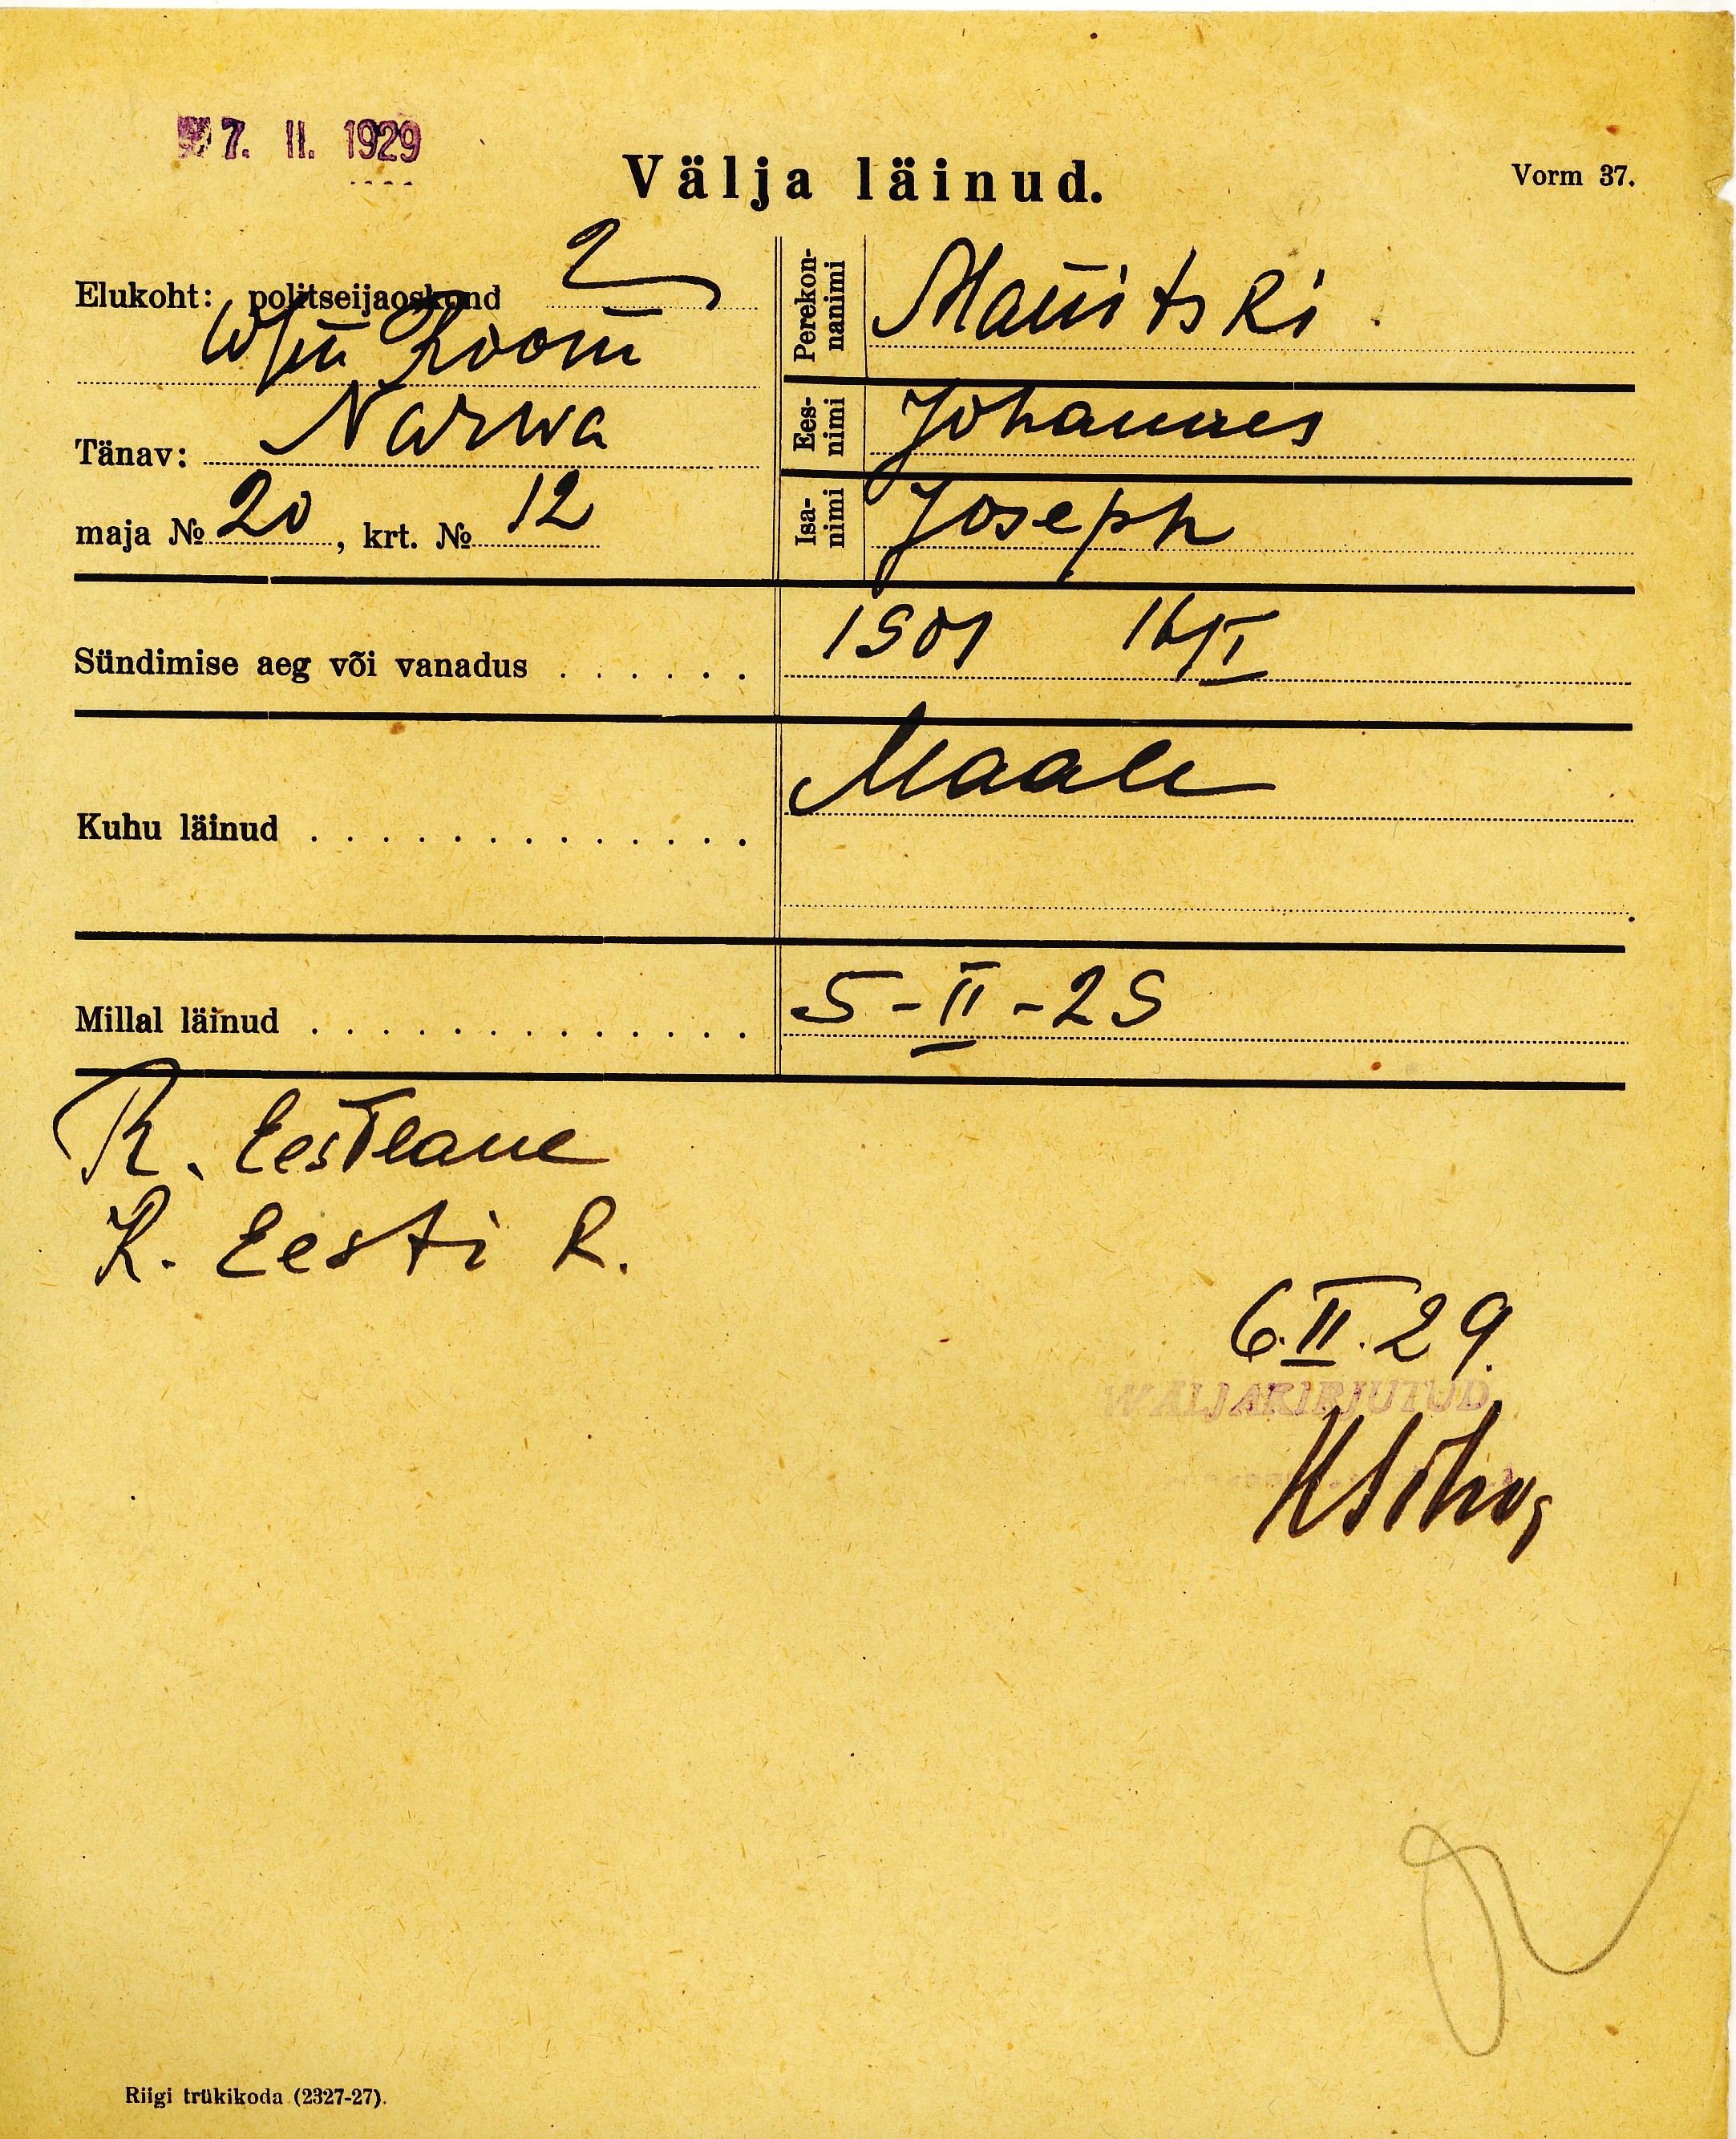 7. II. 1929
Välja läinud.
Vorm 37.
Elukoht: politseijaoskond 2
Tänav: Narwa
maja № 20, krt. № 12
Perekonnanimi
Eesnimi Johannes
Isanimi Joseph
Sündimise aeg või vanadus . . . . . . 1901 16/II
Kuhu läinud . . . . . . . . . . . . . Maale
Millal läinud . . . . . . . . . . . . . 5-II-29
R. Eestlane
K. Eesti R.
6.II.29.
WÄLJAKIRJUTUD
Riigi trükikoda (2327-27).